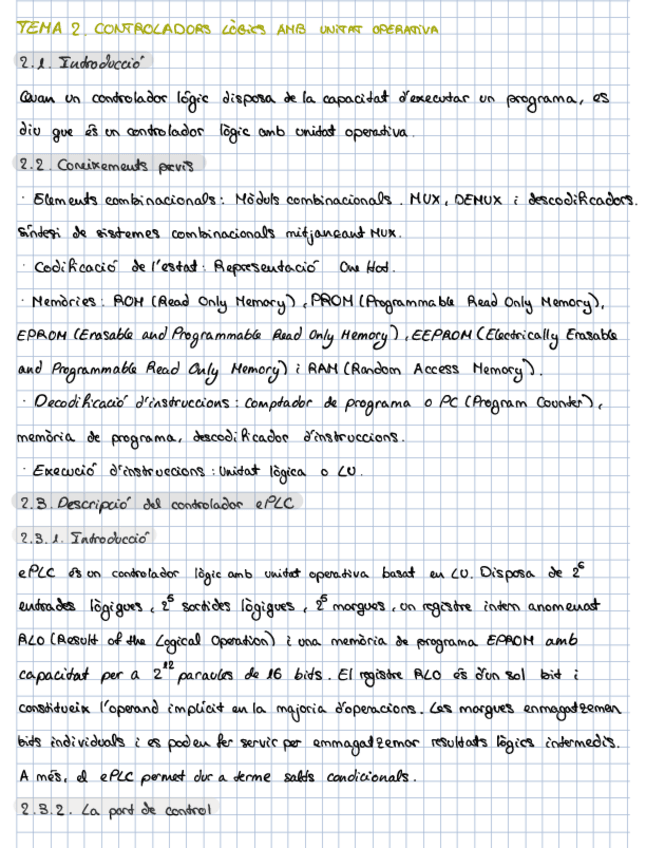 TEMA 2. CONTROLADORS LÒGICS AMB UNITAT OPERATIVA
2.1. Introducció
Quan un controlador lògic disposa de la capacitat d'executar un programa, es
diu que és un controlador lògic amb unitat operativa.
2.2. Coneixements previs
· Elements combinacionals: Mòduls combinacionals. MUX, DEMUX i descodificadors.
Síntesi de sistemes combinacionals mitjançant MUX.
· Codificació de l'estat: Representació One Hot.
· Memòries: ROM (Read Only Memory), PROM (Programmable Read Only Memory),
EPROM (Erasable and Programmable Read Only Memory), EEPROM (Electrically Erasable
and Programmable Read Only Memory) i RAM (Random Access Memory).
· Decodificació d'instruccions: comptador de programa o PC (Program Counter),
memòria de programa, descodificador d'instruccions.
· Execució d'instruccions: Unitat lògica o LU.
2.3. Descripció del controlador ePLC
2.3.1. Introducció
ePLC és un controlador lògic amb unitat operativa basat en LU. Disposa de 2⁶
entrades lògiques, 2⁵ sortides lògiques, 2⁵ marques, un registre intern anomenat
RLO (Result of the Logical Operation) i una memòria de programa EPROM amb
capacitat per a 2¹² paraules de 16 bits. El registre RLO és d'un sol bit i
constitueix l'operand implícit en la majoria d'operacions. Les marques enmagatzemen
bits individuals i es poden fer servir per emmagatzemar resultats lògics intermedis.
A més, el ePLC permet dur a terme salts condicionals.
2.3.2. La part de control